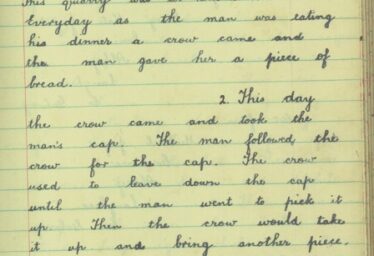 This quarry was
Everyday as the man was eating
his dinner a crow came and
the man gave her a piece of
bread.
2. This day
the crow came and took the
man's cap. The man followed the
crow for the cap. The crow
used to leave down the cap
until the man went to pick it
up. Then the crow would take
it up and bring another piece.